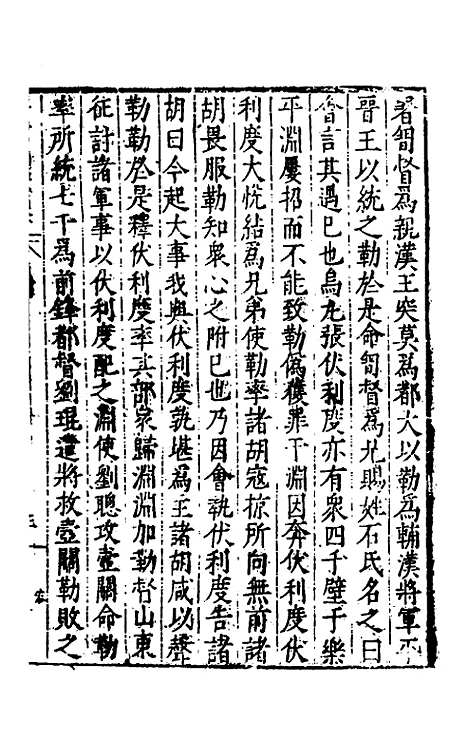 署㔨督爲親漢王突莫爲都大以勒爲輔漢將軍平
晉王以統之勒於是命㔨督爲兄賜姓石氏名之曰
會言其遇已也烏丸張伏利度亦有衆四千壁于樂
平淵屢招而不能致勒僞獲罪于淵因奔伏利度伏
利度大悅結爲兄弟使勒率諸胡寇掠所向無前諸
胡畏服勒知衆心之附已也乃因會執伏利度告諸
胡曰今起大事我與伏利度孰堪爲主諸胡咸以聲
勒勒於是釋伏利度率其部衆歸淵淵加勒督山東
征討諸軍事以伏利度配之淵使劉聰攻壺關命勒
率所統七千爲前鋒都督劉琨遣將救壺關勒敗之